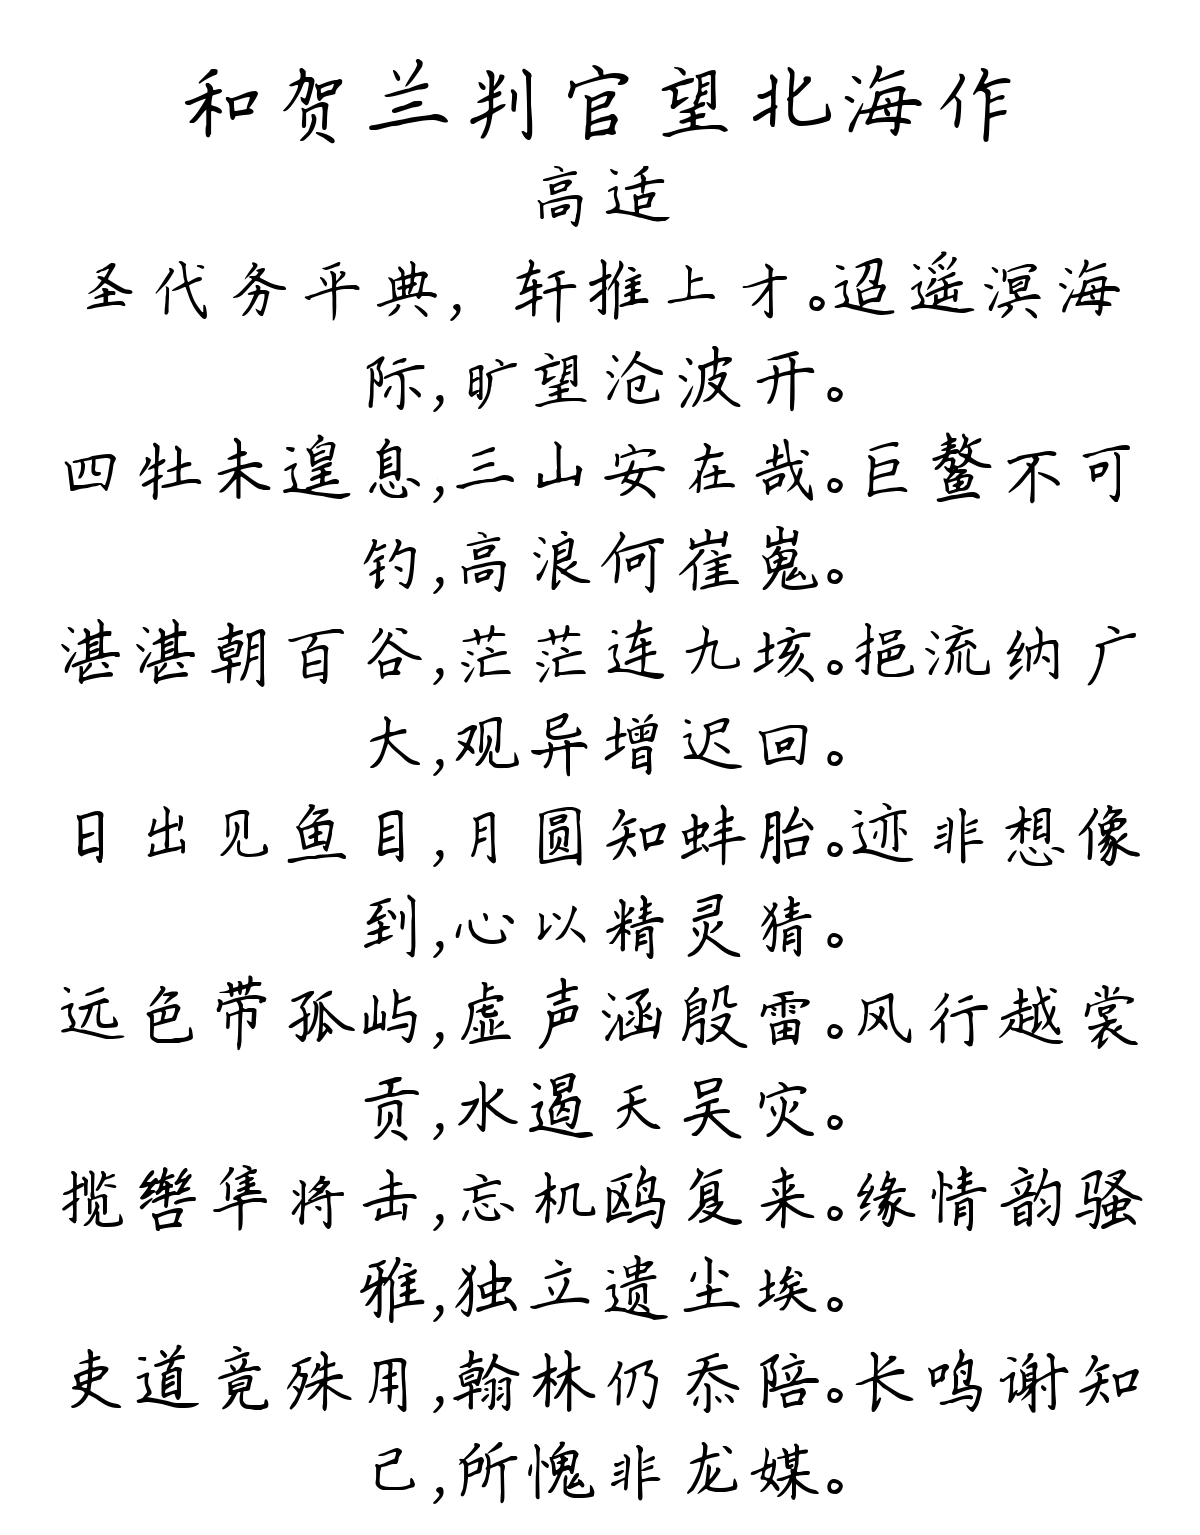 和贺兰判官望北海作
高适
圣代务平典，轩推上才。迢遥溟海
际，旷望沧波开。
四牡未遑息，三山安在哉。巨鳌不可
钓，高浪何崔嵬。
湛湛朝百谷，茫茫连九垓。挹流纳广
大，观异增迟回。
日出见鱼目，月圆知蚌胎。迹非想像
到，心以精灵猜。
远色带孤屿，虚声涵殷雷。风行越裳
贡，水遏天吴灾。
揽辔隼将击，忘机鸥复来。缘情韵骚
雅，独立遗尘埃。
吏道竟殊用，翰林仍忝陪。长鸣谢知
己，所愧非龙媒。